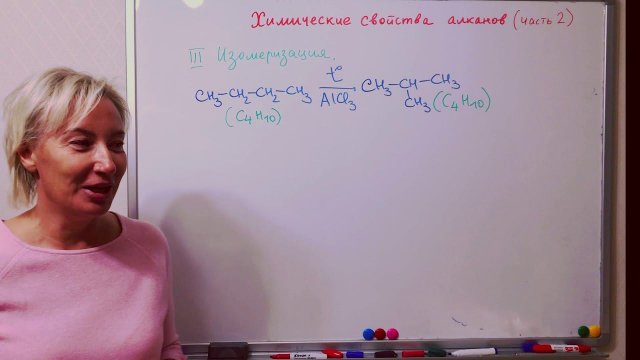 Химические свойства алканов (часть 2)
III Изомеризация.
CH₃-CH₂-CH₂-CH₃ t° AlCl₃ CH₃-CH-CH₃
CH₃
(C₄H₁₀) (C₄H₁₀)